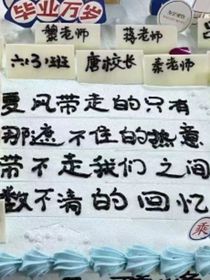 毕业万岁
樊老师
蒋老师
六.3班
唐校长
秦老师
夏风带走的只有
那遮不住的热意
带不走我们之间
数不清的回忆